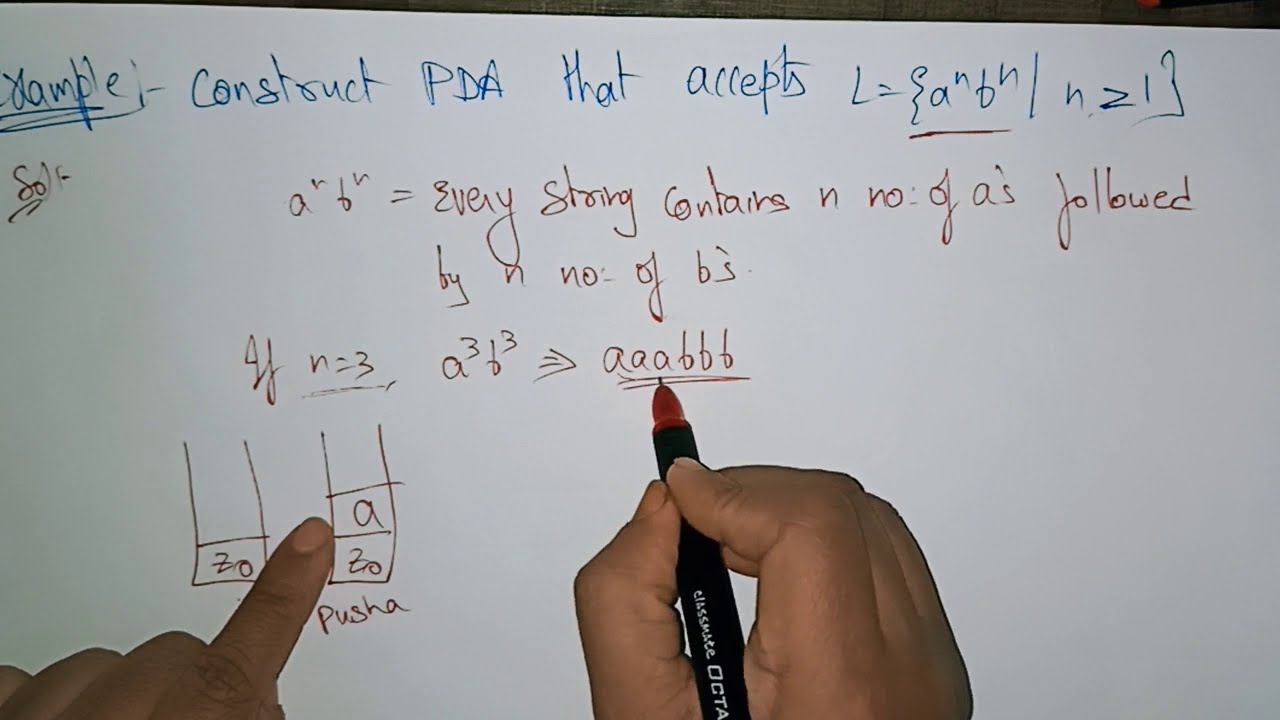 Example:- Construct PDA that accepts L={aⁿbⁿ | n ≥ 1}
Sol:-
aⁿbⁿ = Every string contains n no: of a's followed
by n no: of b's.
If n=3, a³b³ ⇒ aaabbb
a
Z₀ Z₀
Push a
classmate OCTA